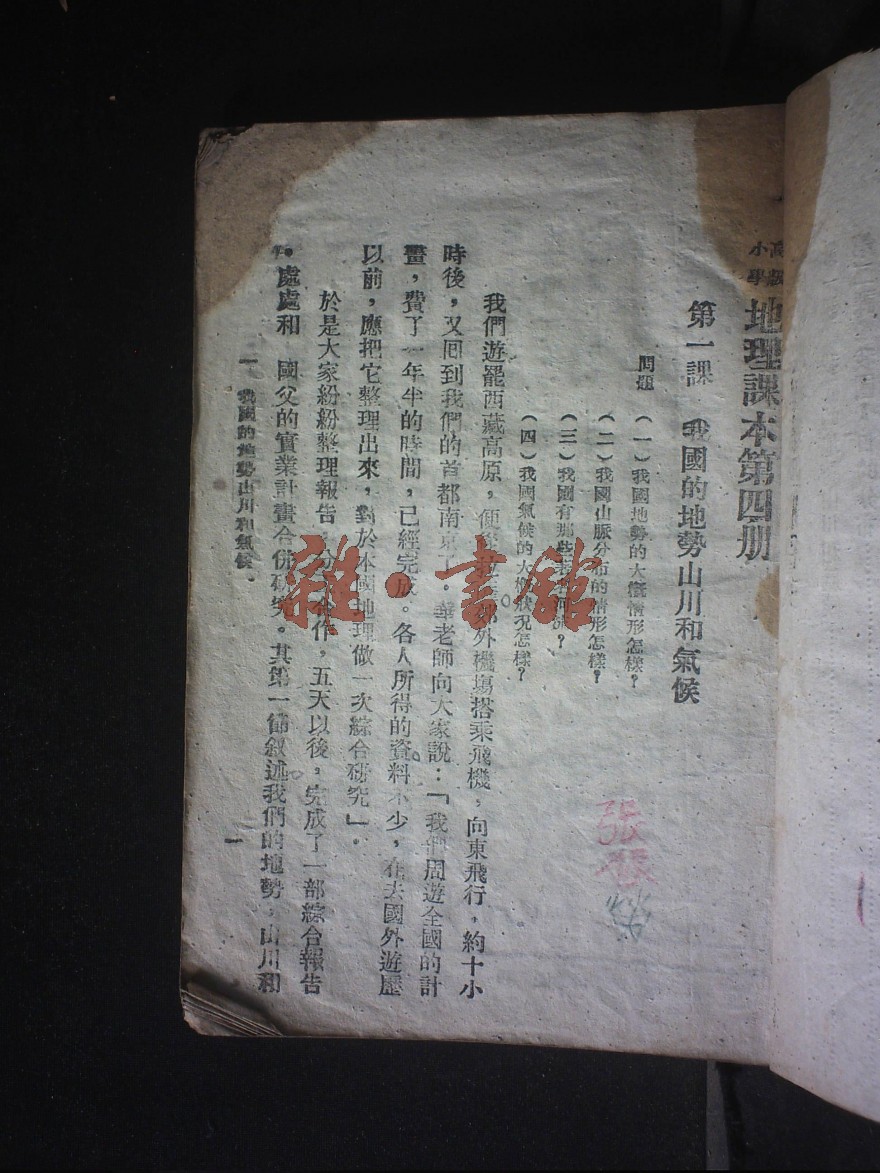 高級小學
地理課本第四册
第一課　我國的地勢山川和氣候
問題　（一）我國地勢的大概情形怎樣？
（二）我國山脈分布的情形怎樣？
（三）我國有那些
（四）我國氣候的大概狀況怎樣？
我們遊罷西藏高原，便 外機場搭乘飛機，向東飛行，約十小
時後，又回到我們的首都南京 。華老師向大家說：「我們周遊全國的計
畫，費了一年半的時間，已經完成。各人所得的資料不少，在去國外遊歷
以前，應把它整理出來，對於本國地理做一次綜合研究」。
於是大家紛紛整理報告，分 合作，五天以後，完成了一部綜合報告
處處和　國父的實業計畫合併研究。其第一節叙述我們的地勢，山川和
一、我國的地勢山川和氣候。
一
雜·書館
張